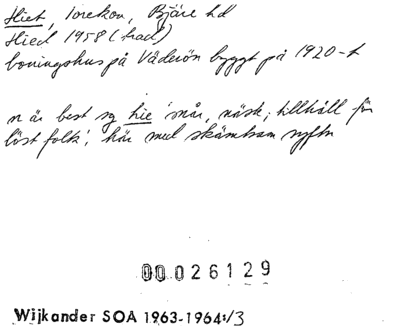 Hiet, Torekov, Bjäre hd
Hied 1958 (trad)
boningshus på Väderön byggt på 1920-t
n är best sg hie 'snår, näste; tillhåll för
löst folk', här med skämtsam syftn
00026129
Wijkander SOA 1963-1964:/3